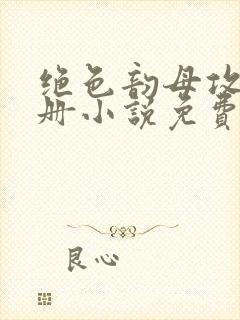 绝色韵母攻
册小说免费
良心